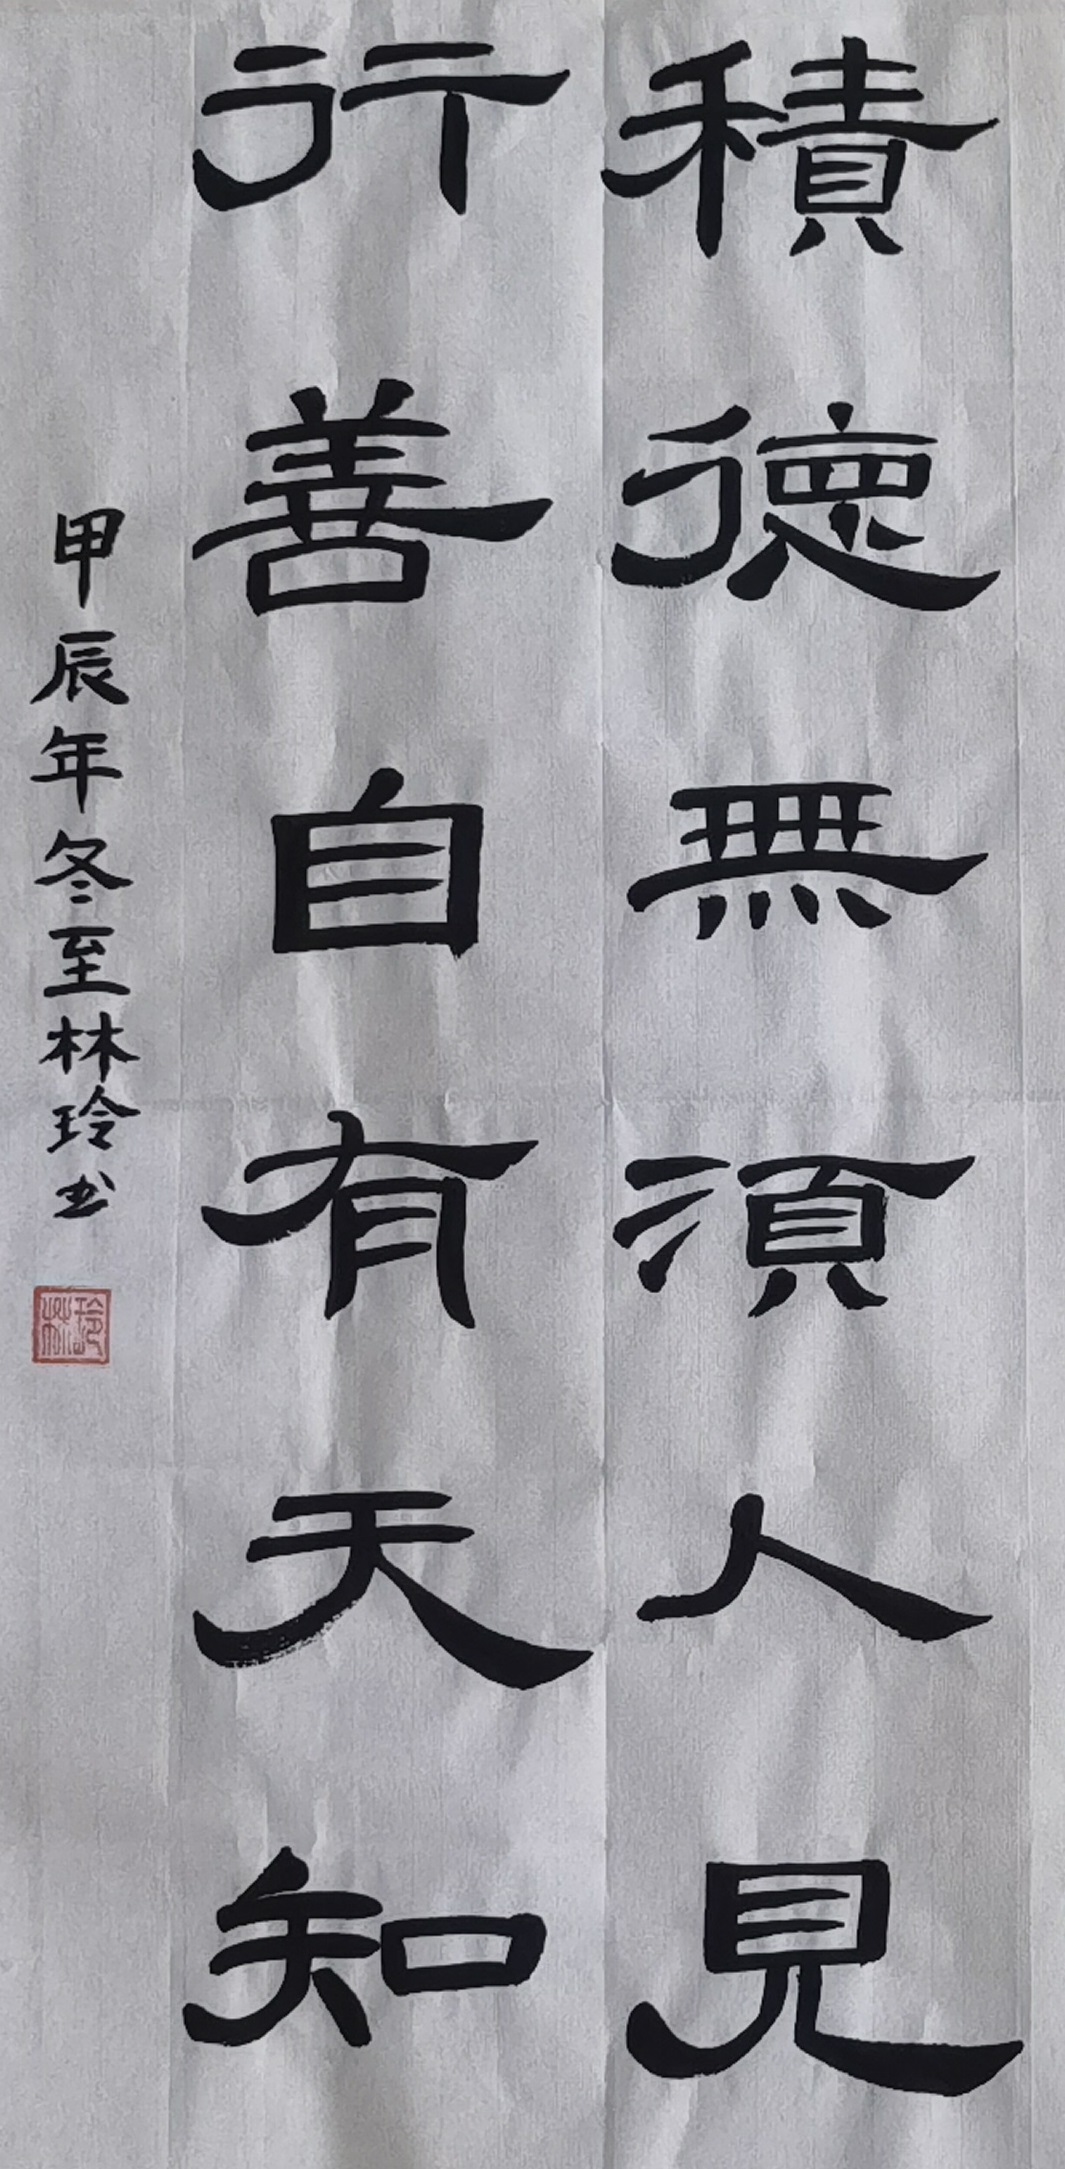 積德無須人見
行善自有天知
甲辰年冬至林玲书
林玲